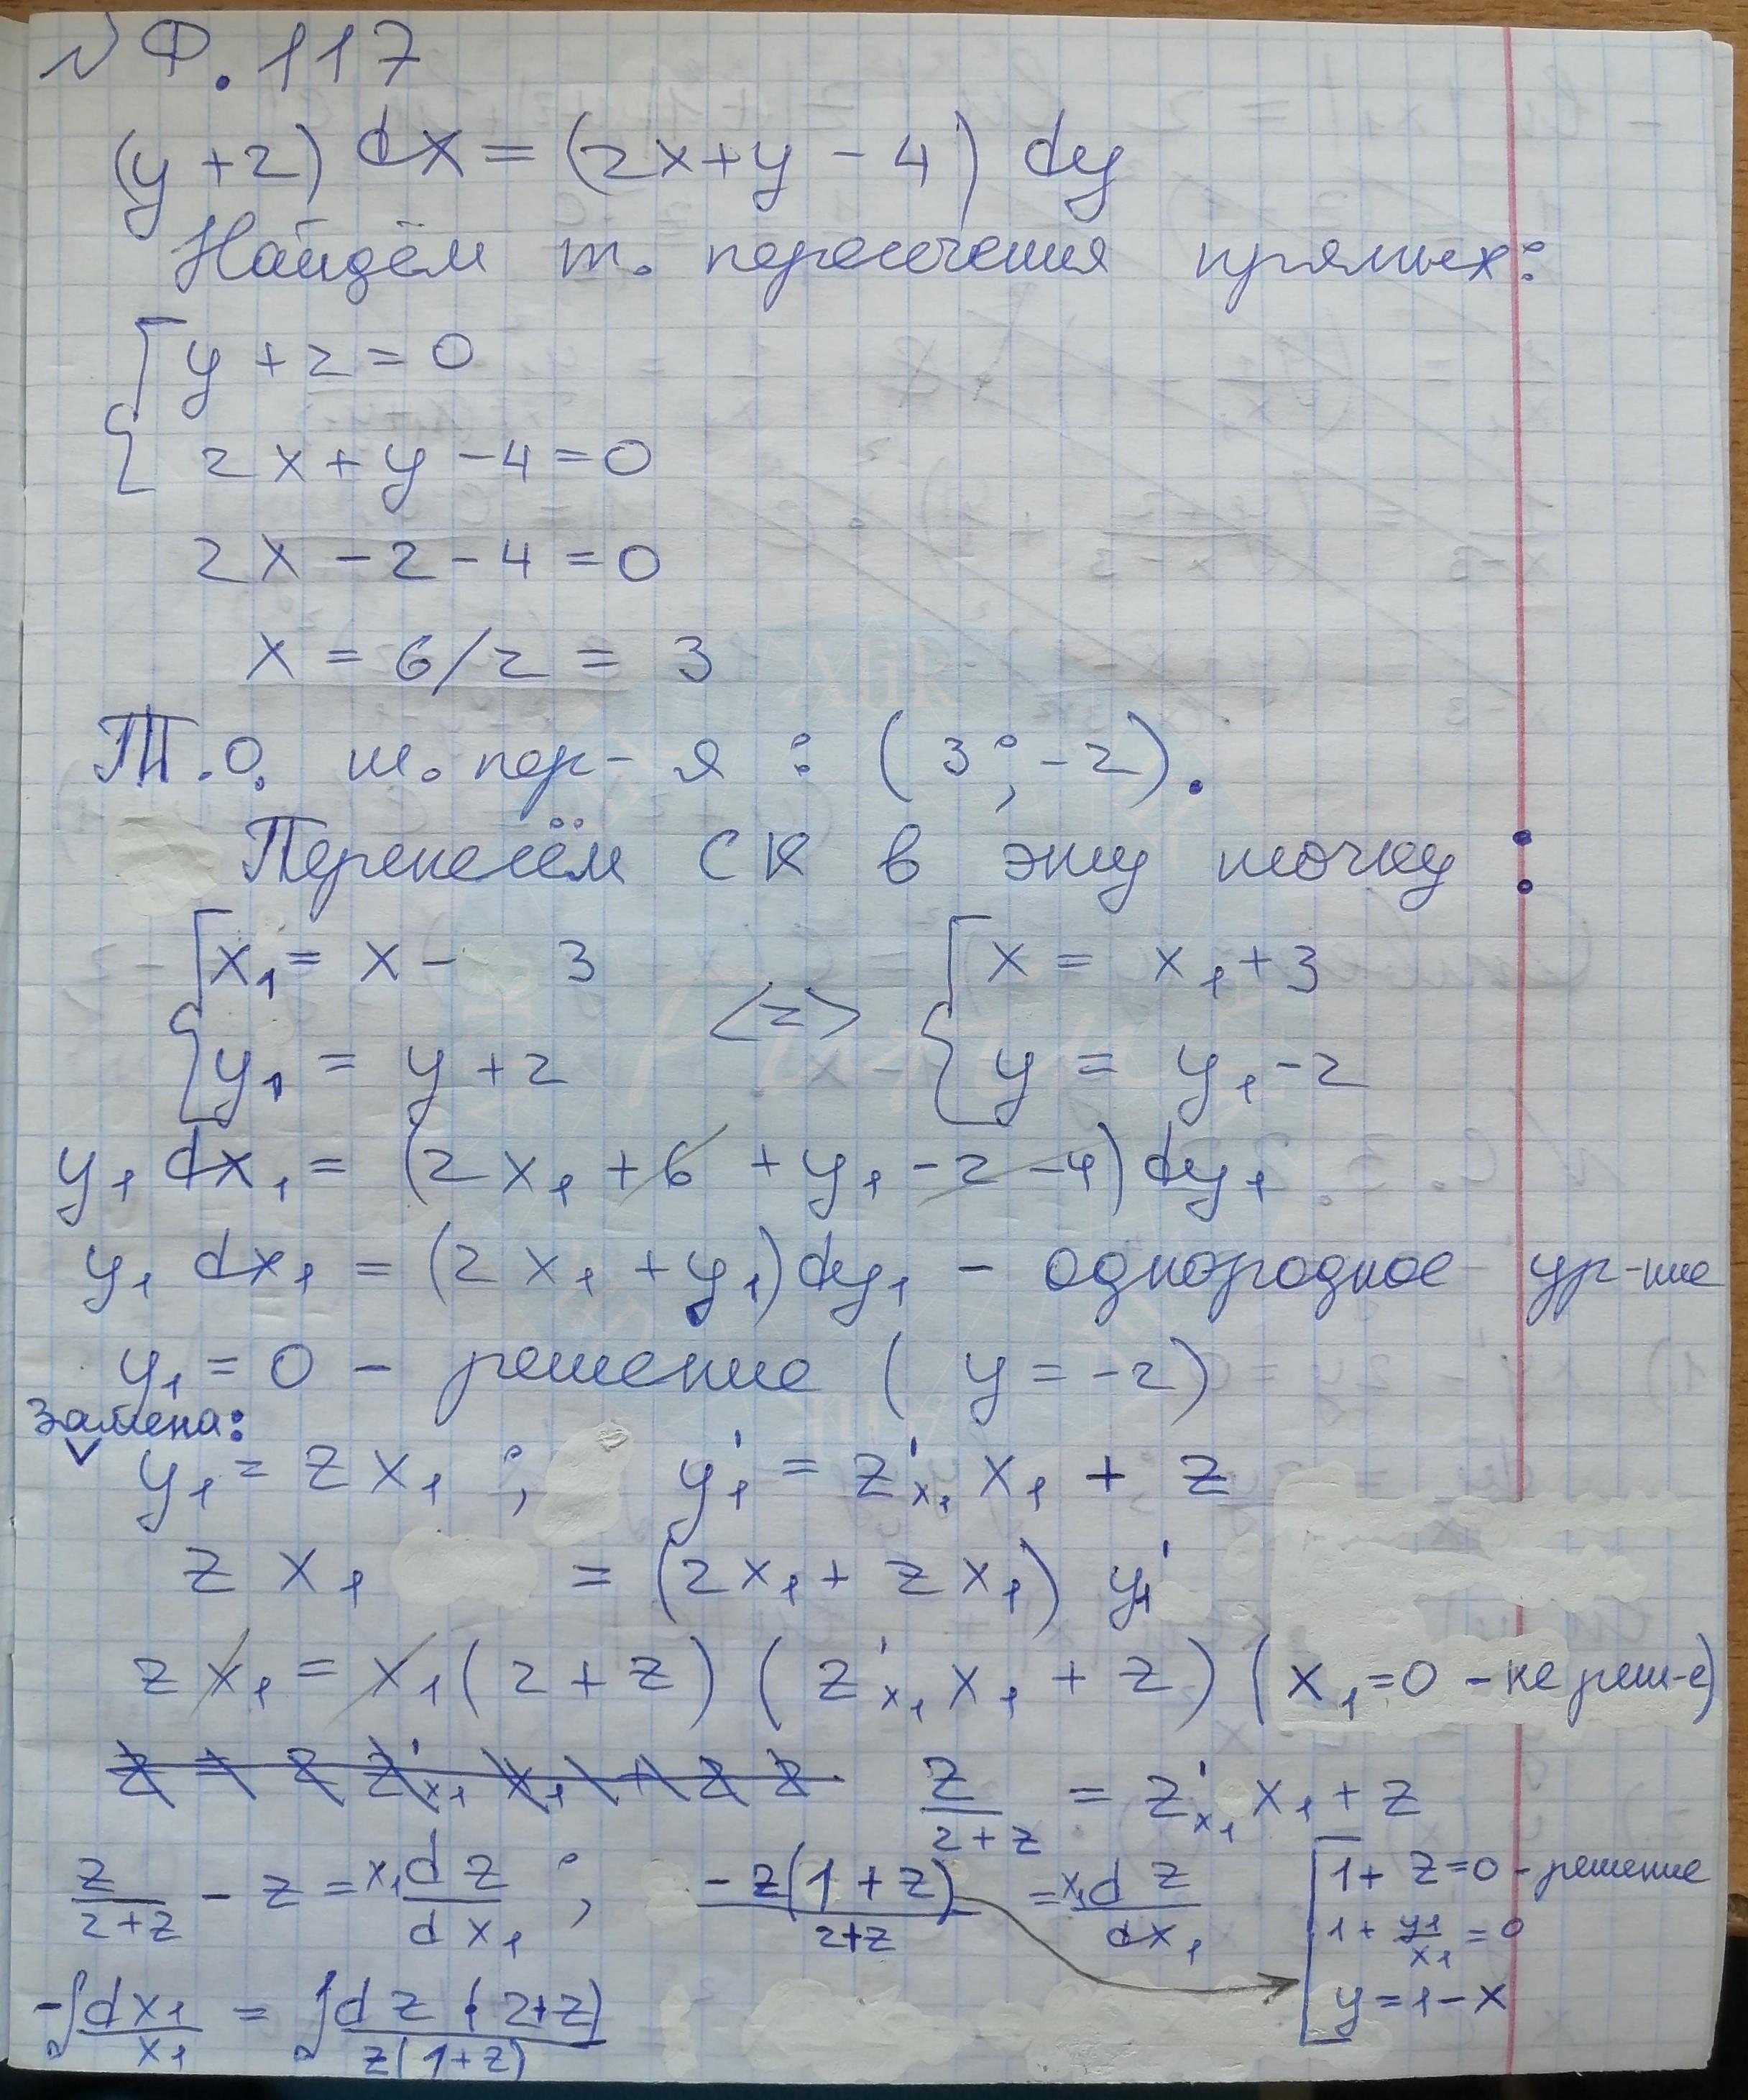 № Ф. 117
(y + 2) dx = (2x + y - 4) dy
Найдём т. пересечения прямых:
{ y + 2 = 0
2x + y - 4 = 0
2x - 2 - 4 = 0
x = 6/2 = 3
Т.о. т. пер-я : (3 ; -2).
Перенесём СК в эту точку :
{ x₁ = x - 3 <=> { x = x₁ + 3
y₁ = y + 2 y = y₁ - 2
y₁ dx₁ = (2x₁ + 6 + y₁ - 2 - 4) dy₁
y₁ dx₁ = (2x₁ + y₁) dy₁ - однородное ур-ние
y₁ = 0 - решение ( y = -2)
Замена:
y₁ = z x₁ ; y₁' = z'ₓ₁ x₁ + z
z x₁ = (2x₁ + z x₁) y₁'
z x₁ = x₁ (2 + z) (z'ₓ₁ x₁ + z) (x₁ = 0 - не реш-е)
z/(2+z) = z'ₓ₁ x₁ + z
z/(2+z) - z = x₁ dz/dx₁ ; -z(1+z)/(2+z) = x₁ dz/dx₁
[ 1 + z = 0 - решение
1 + y₁/x₁ = 0
y = 1 - x
-∫ dx₁/x₁ = ∫ dz (2+z)/(z(1+z))